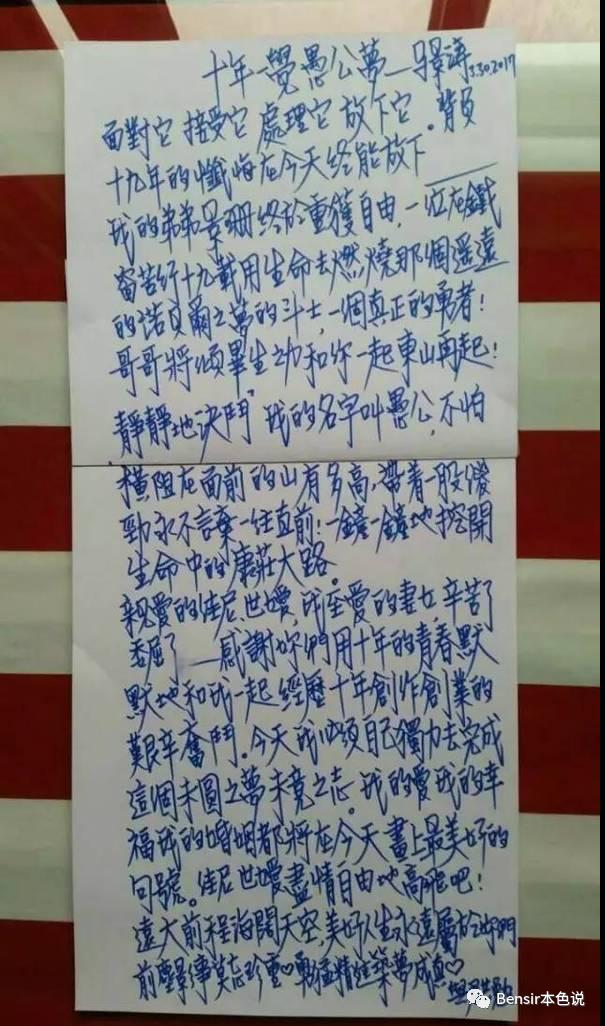 十年一覺愚公夢—馬景濤3.30.2017
面對它 接受它 處理它 放下它。背負
十九年的懺悔在今天終能放下——
我的弟弟景珊終於重獲自由，一位在鐵
窗苦行十九載用生命去燃燒那個遥遠
的諾貝爾之夢的斗士，一個真正的勇者！
哥哥將傾畢生之力和你一起東山再起！
靜靜地決鬥"我的名字叫愚公，不怕
橫阻在面前的山有多高，帶着一股傻
勁永不言棄一往直前！一鏟一鏟地挖開
生命中的康莊大路。
親愛的佳尼、世嬡，我至愛的妻女，辛苦了
委屈了——感謝妳們用十年的青春默
默地和我一起經歷十年創作創業的
艱辛奮鬥。今天我必須自己獨力去完成
這個未圓之夢未竟之志。我的愛我的幸
福我的婚姻都將在今天畫上最美好的
句號。佳尼世嬡盡情自由地高飛吧！
遠大前程海闊天空，美好人生永遠屬於妳們
前塵舊事莫忘珍重♡勇猛精進築夢成真♡
Bensir本色说